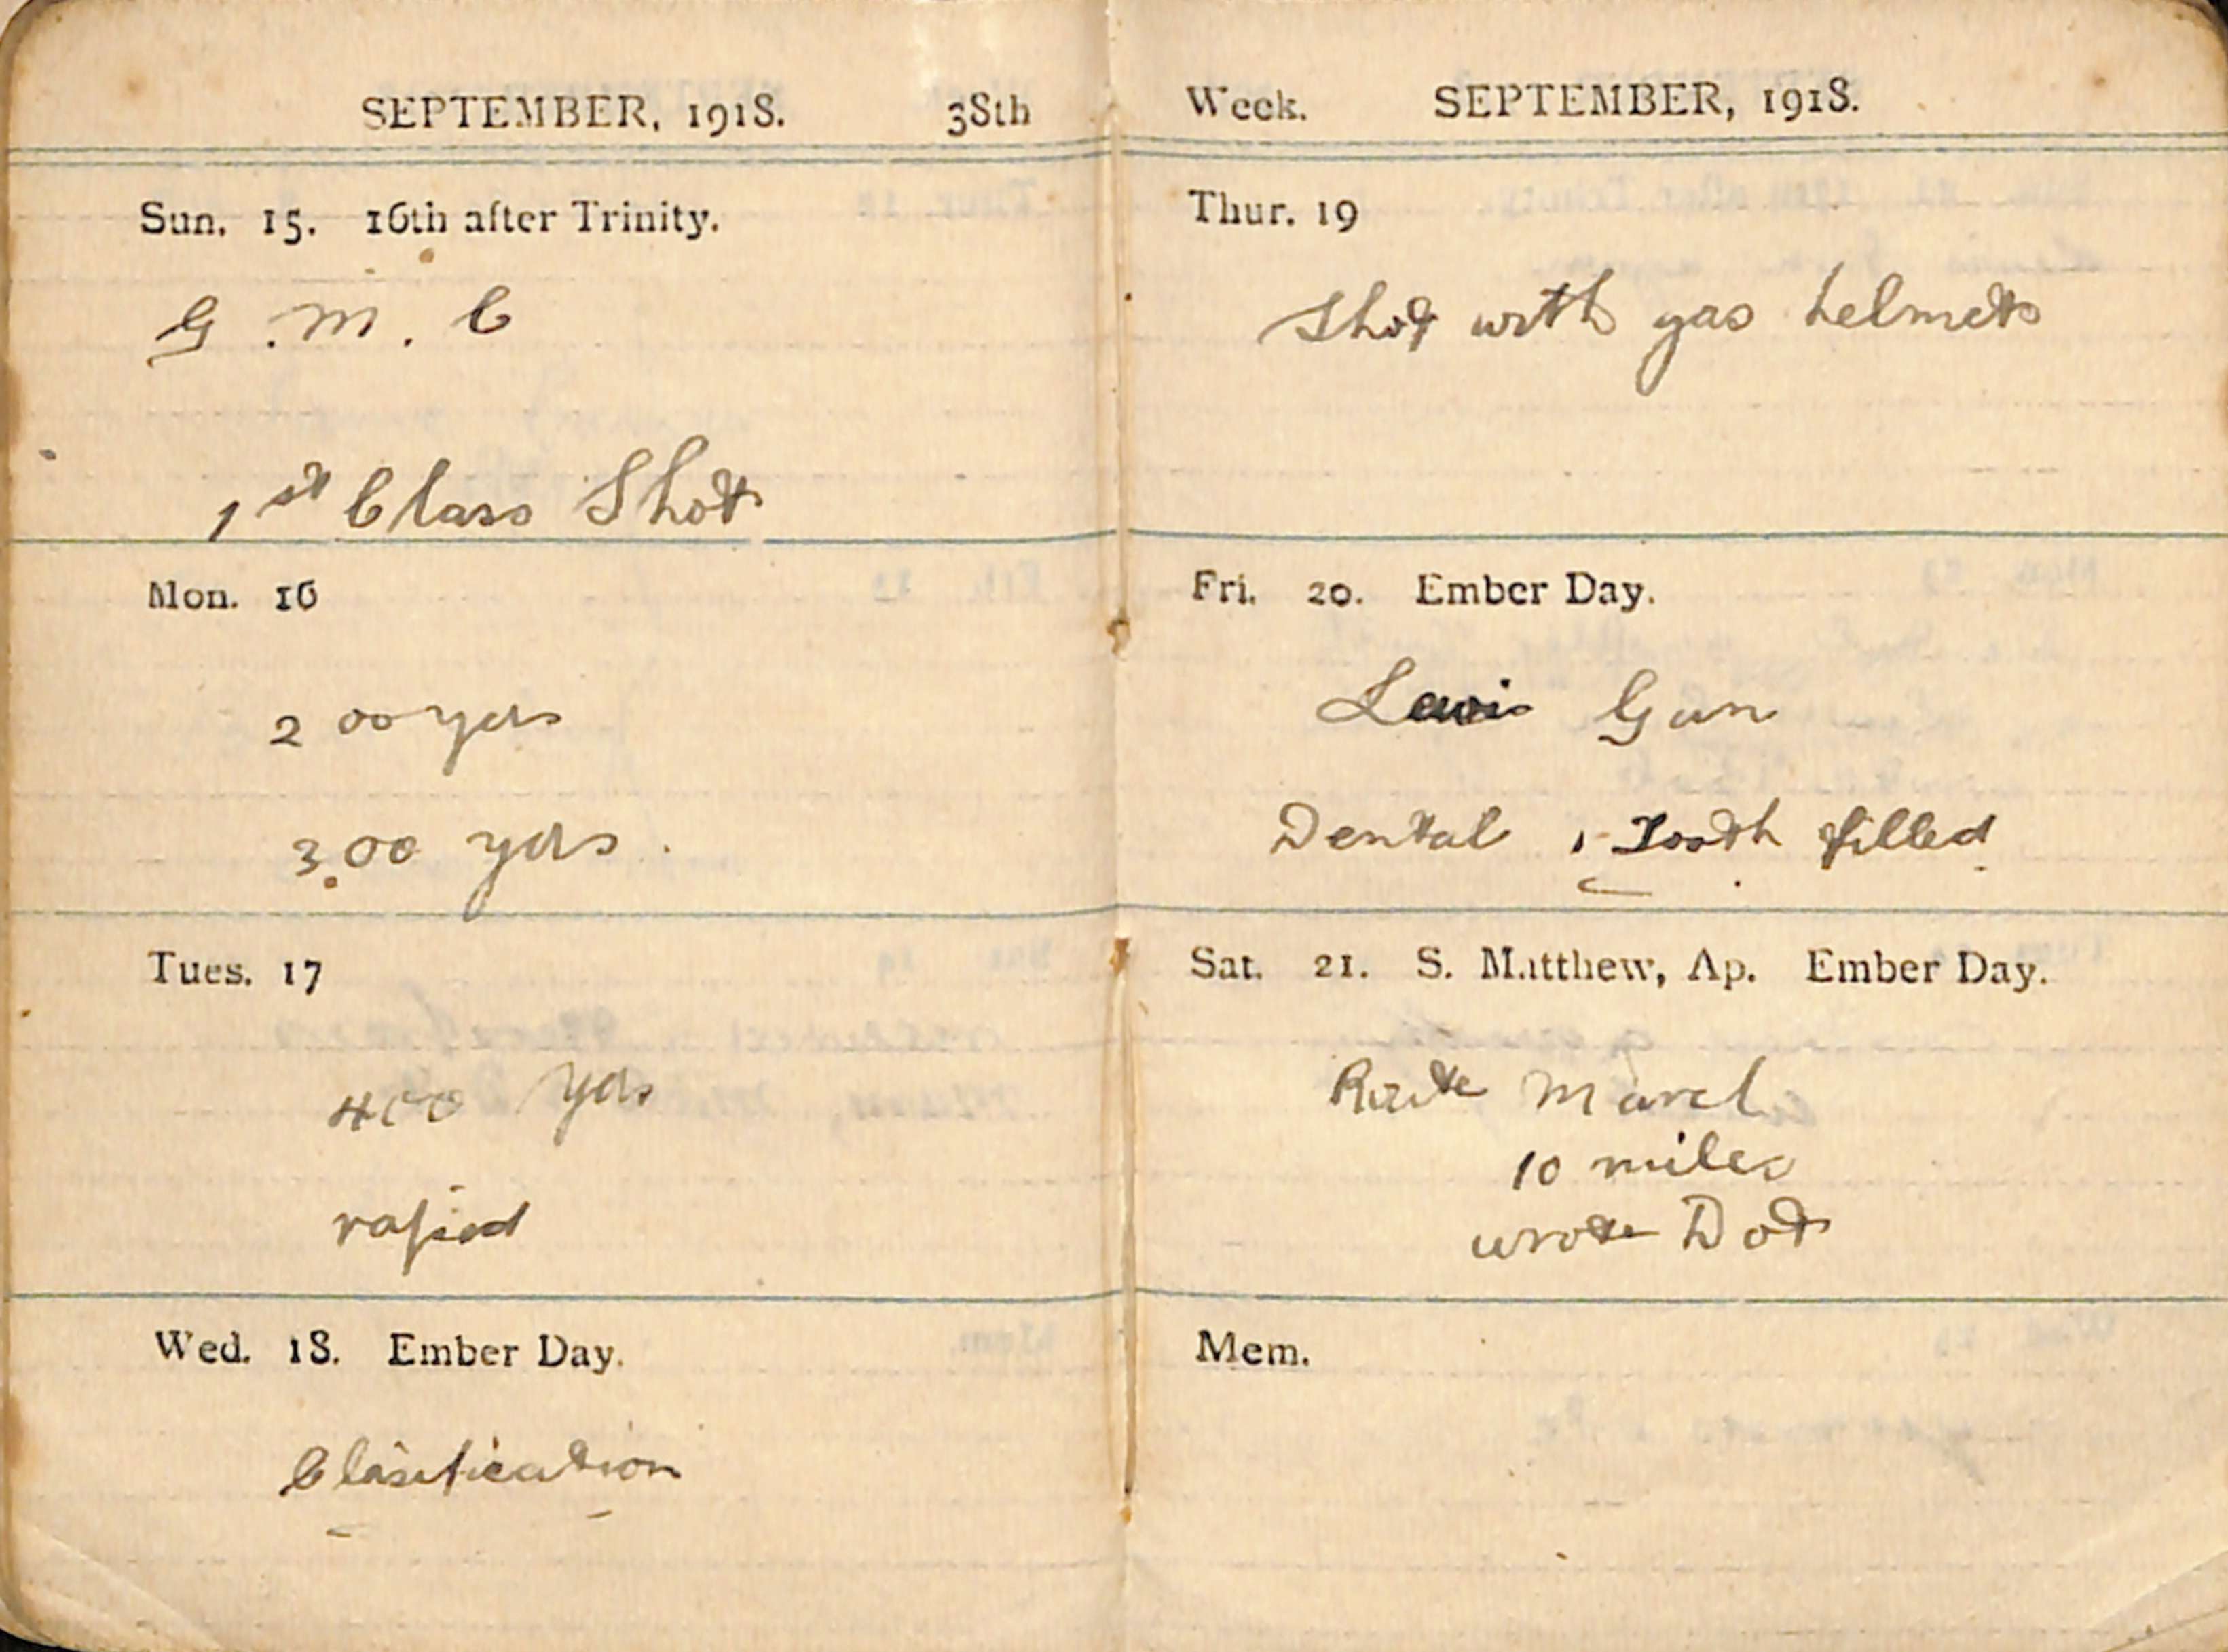 SEPTEMBER, 1918. 38th
Sun. 15. 16th after Trinity.
G. M. C
1st Class Shot
Mon. 16
200 yds
300 yds.
Tues. 17
400 yds
rapid
Wed. 18. Ember Day.
Clasification
Week. SEPTEMBER, 1918.
Thur. 19
Shot with gas helmets
Fri. 20. Ember Day.
Lewis Gun
Dental 1 Tooth filled
Sat. 21. S. Matthew, Ap. Ember Day.
Route March
10 miles
wrote Dot
Mem.